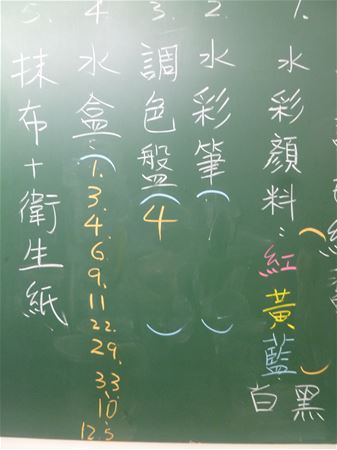 1. 水彩顏料：（紅黃藍）白黑
2. 水彩筆（ ）
3. 調色盤（4 ）
4. 水盒（1. 3. 4. 6. 9. 11 22. 29. 33. 10 12. 5
5. 抹布+衛生紙